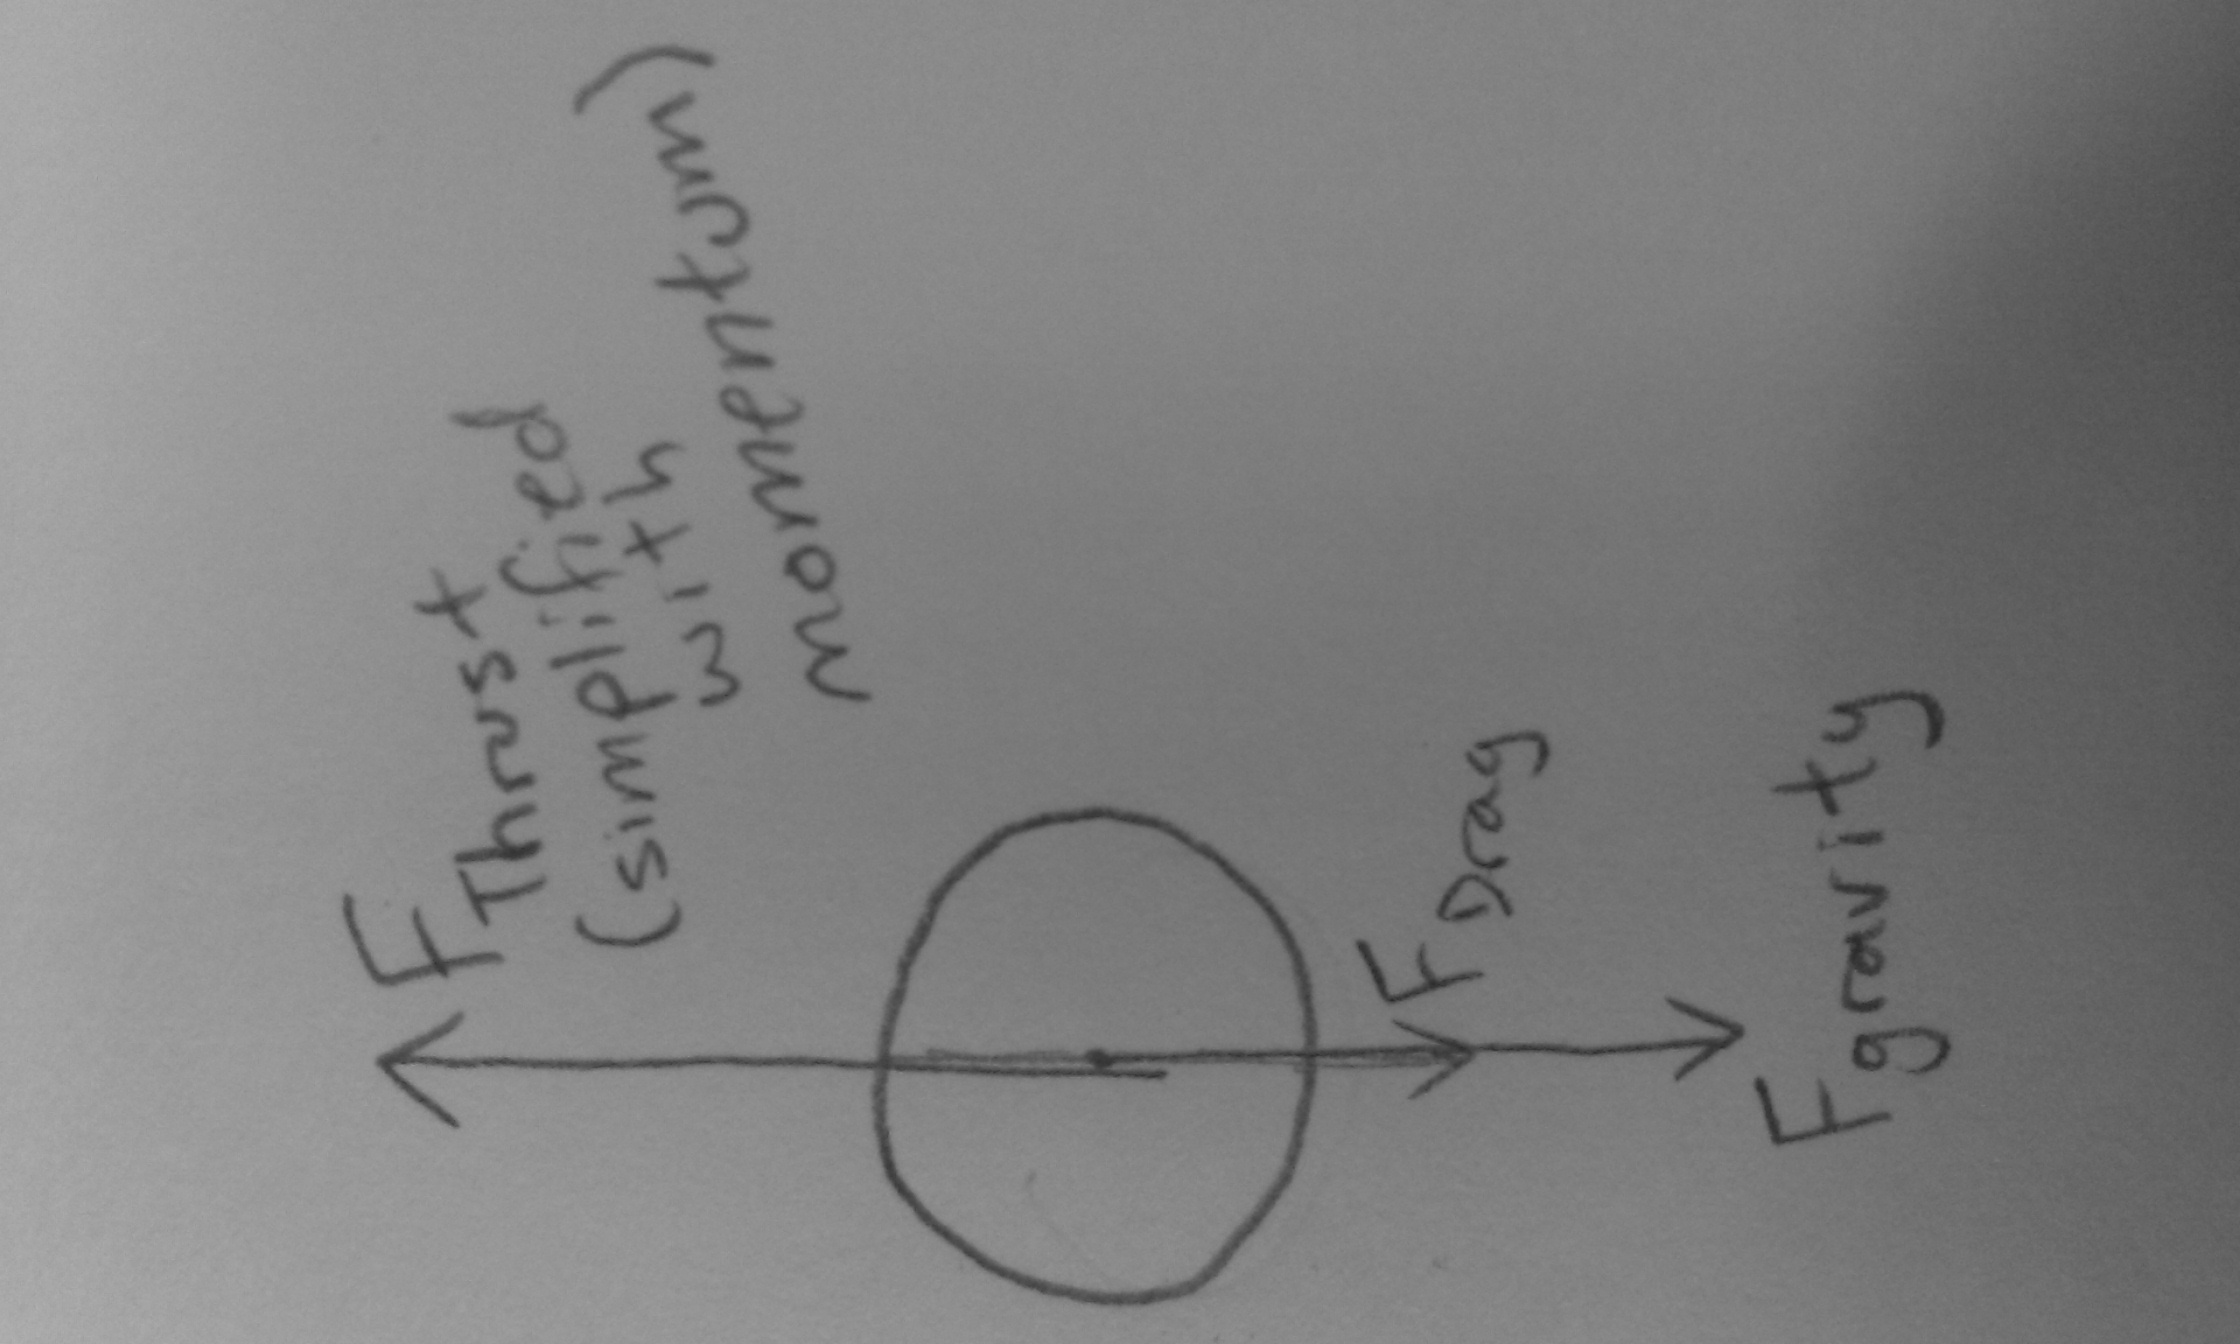 F Thrust
(simplified
with
momentum)
F Drag
Fgravity